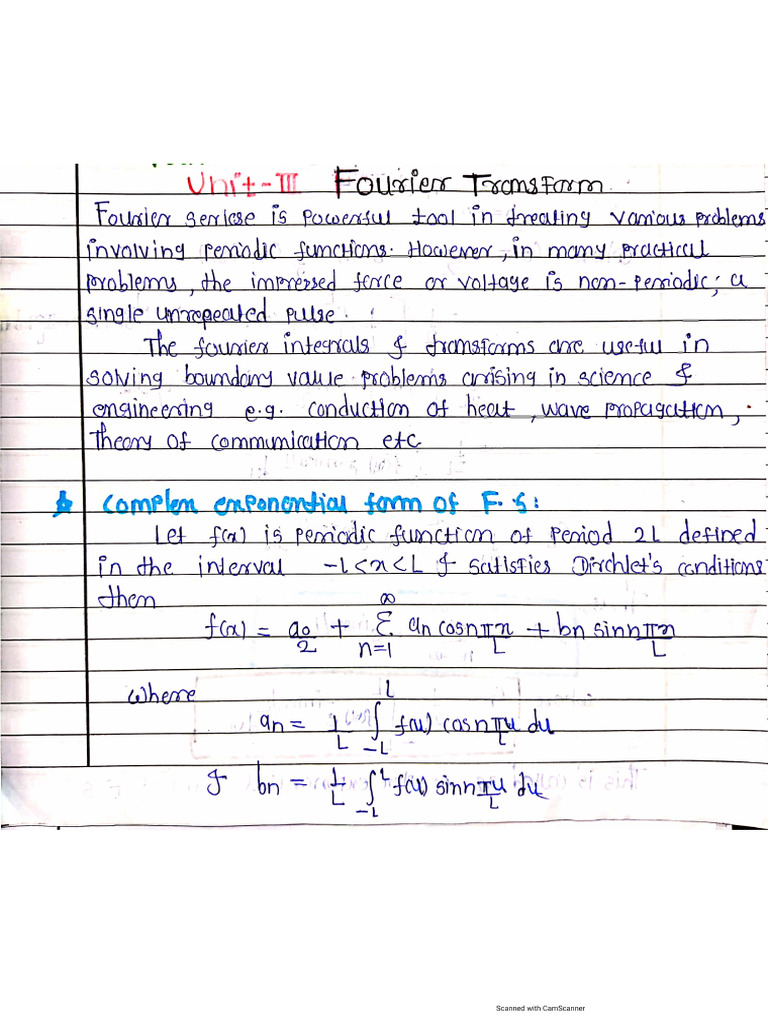 Unit-III Fourier Transform
Fourier seriese is powerful tool in treating various problems
involving periodic functions. However, in many practical
problems, the impressed force or voltage is non-periodic; a
single unrepeated pulse.
The fourier integrals & transforms are useful in
solving boundary value problems arising in science &
engineering e.g. conduction of heat, wave propagation,
theory of communication etc
Complex exponential form of F.S:
Let f(x) is periodic function of period 2L defined
in the interval -L<x<L & satisfies Dirchlet's conditions
then
f(x) = a0/2 + ∞Σn=1 an cos nπx/L + bn sin nπx/L
where
an = 1/L ∫_-L^L f(u) cos nπu/L du
& bn = 1/L ∫_-L^L f(u) sin nπu/L du
Scanned with CamScanner